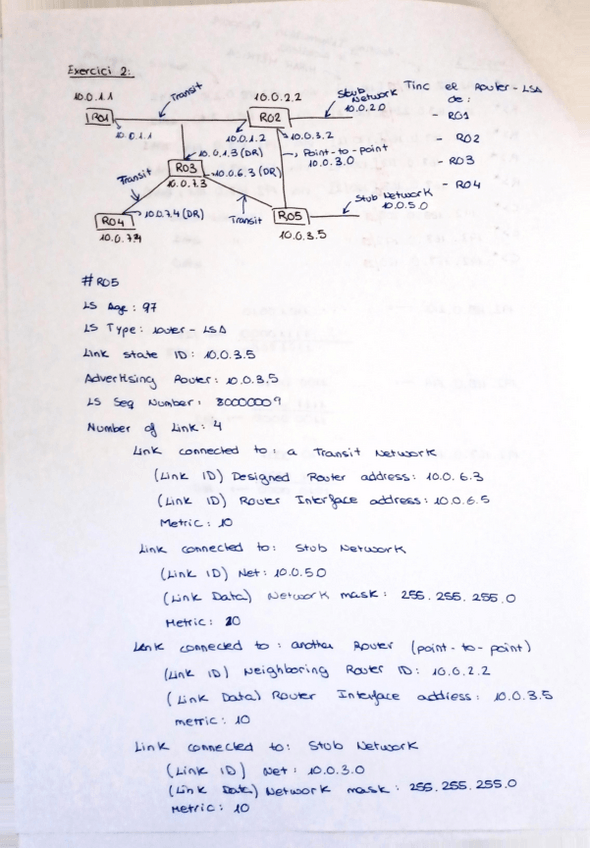 Exercici 2:
10.0.1.1
Transit
10.0.2.2
Stub Network
10.0.2.0
Tinc el Router-LSA de:
- R01
- R02
- R03
- R04
R01
10.0.1.1
R02
10.0.1.2
10.0.3.2
Point-to-point
10.0.3.0
10.0.1.3 (DR)
R03
10.0.6.3 (DR)
10.0.7.3
Transit
Stub Network
10.0.5.0
R04
10.0.7.4 (DR)
Transit
R05
10.0.7.4
10.0.3.5
#R05
LS Age: 97
LS Type: router-LSA
Link state ID: 10.0.3.5
Advertising Router: 10.0.3.5
LS Seq Number: 80000009
Number of Link: 4
Link connected to: a Transit Network
(Link ID) Designed Router address: 10.0.6.3
(Link ID) Router Interface address: 10.0.6.5
Metric: 10
Link connected to: Stub Network
(Link ID) Net: 10.0.5.0
(Link Data) Network mask: 255.255.255.0
Metric: 10
Link connected to: another Router (point-to-point)
(Link ID) Neighboring Router ID: 10.0.2.2
(Link Data) Router Interface address: 10.0.3.5
metric: 10
Link connected to: Stub Network
(Link ID) Net: 10.0.3.0
(Link Data) Network mask: 255.255.255.0
Metric: 10